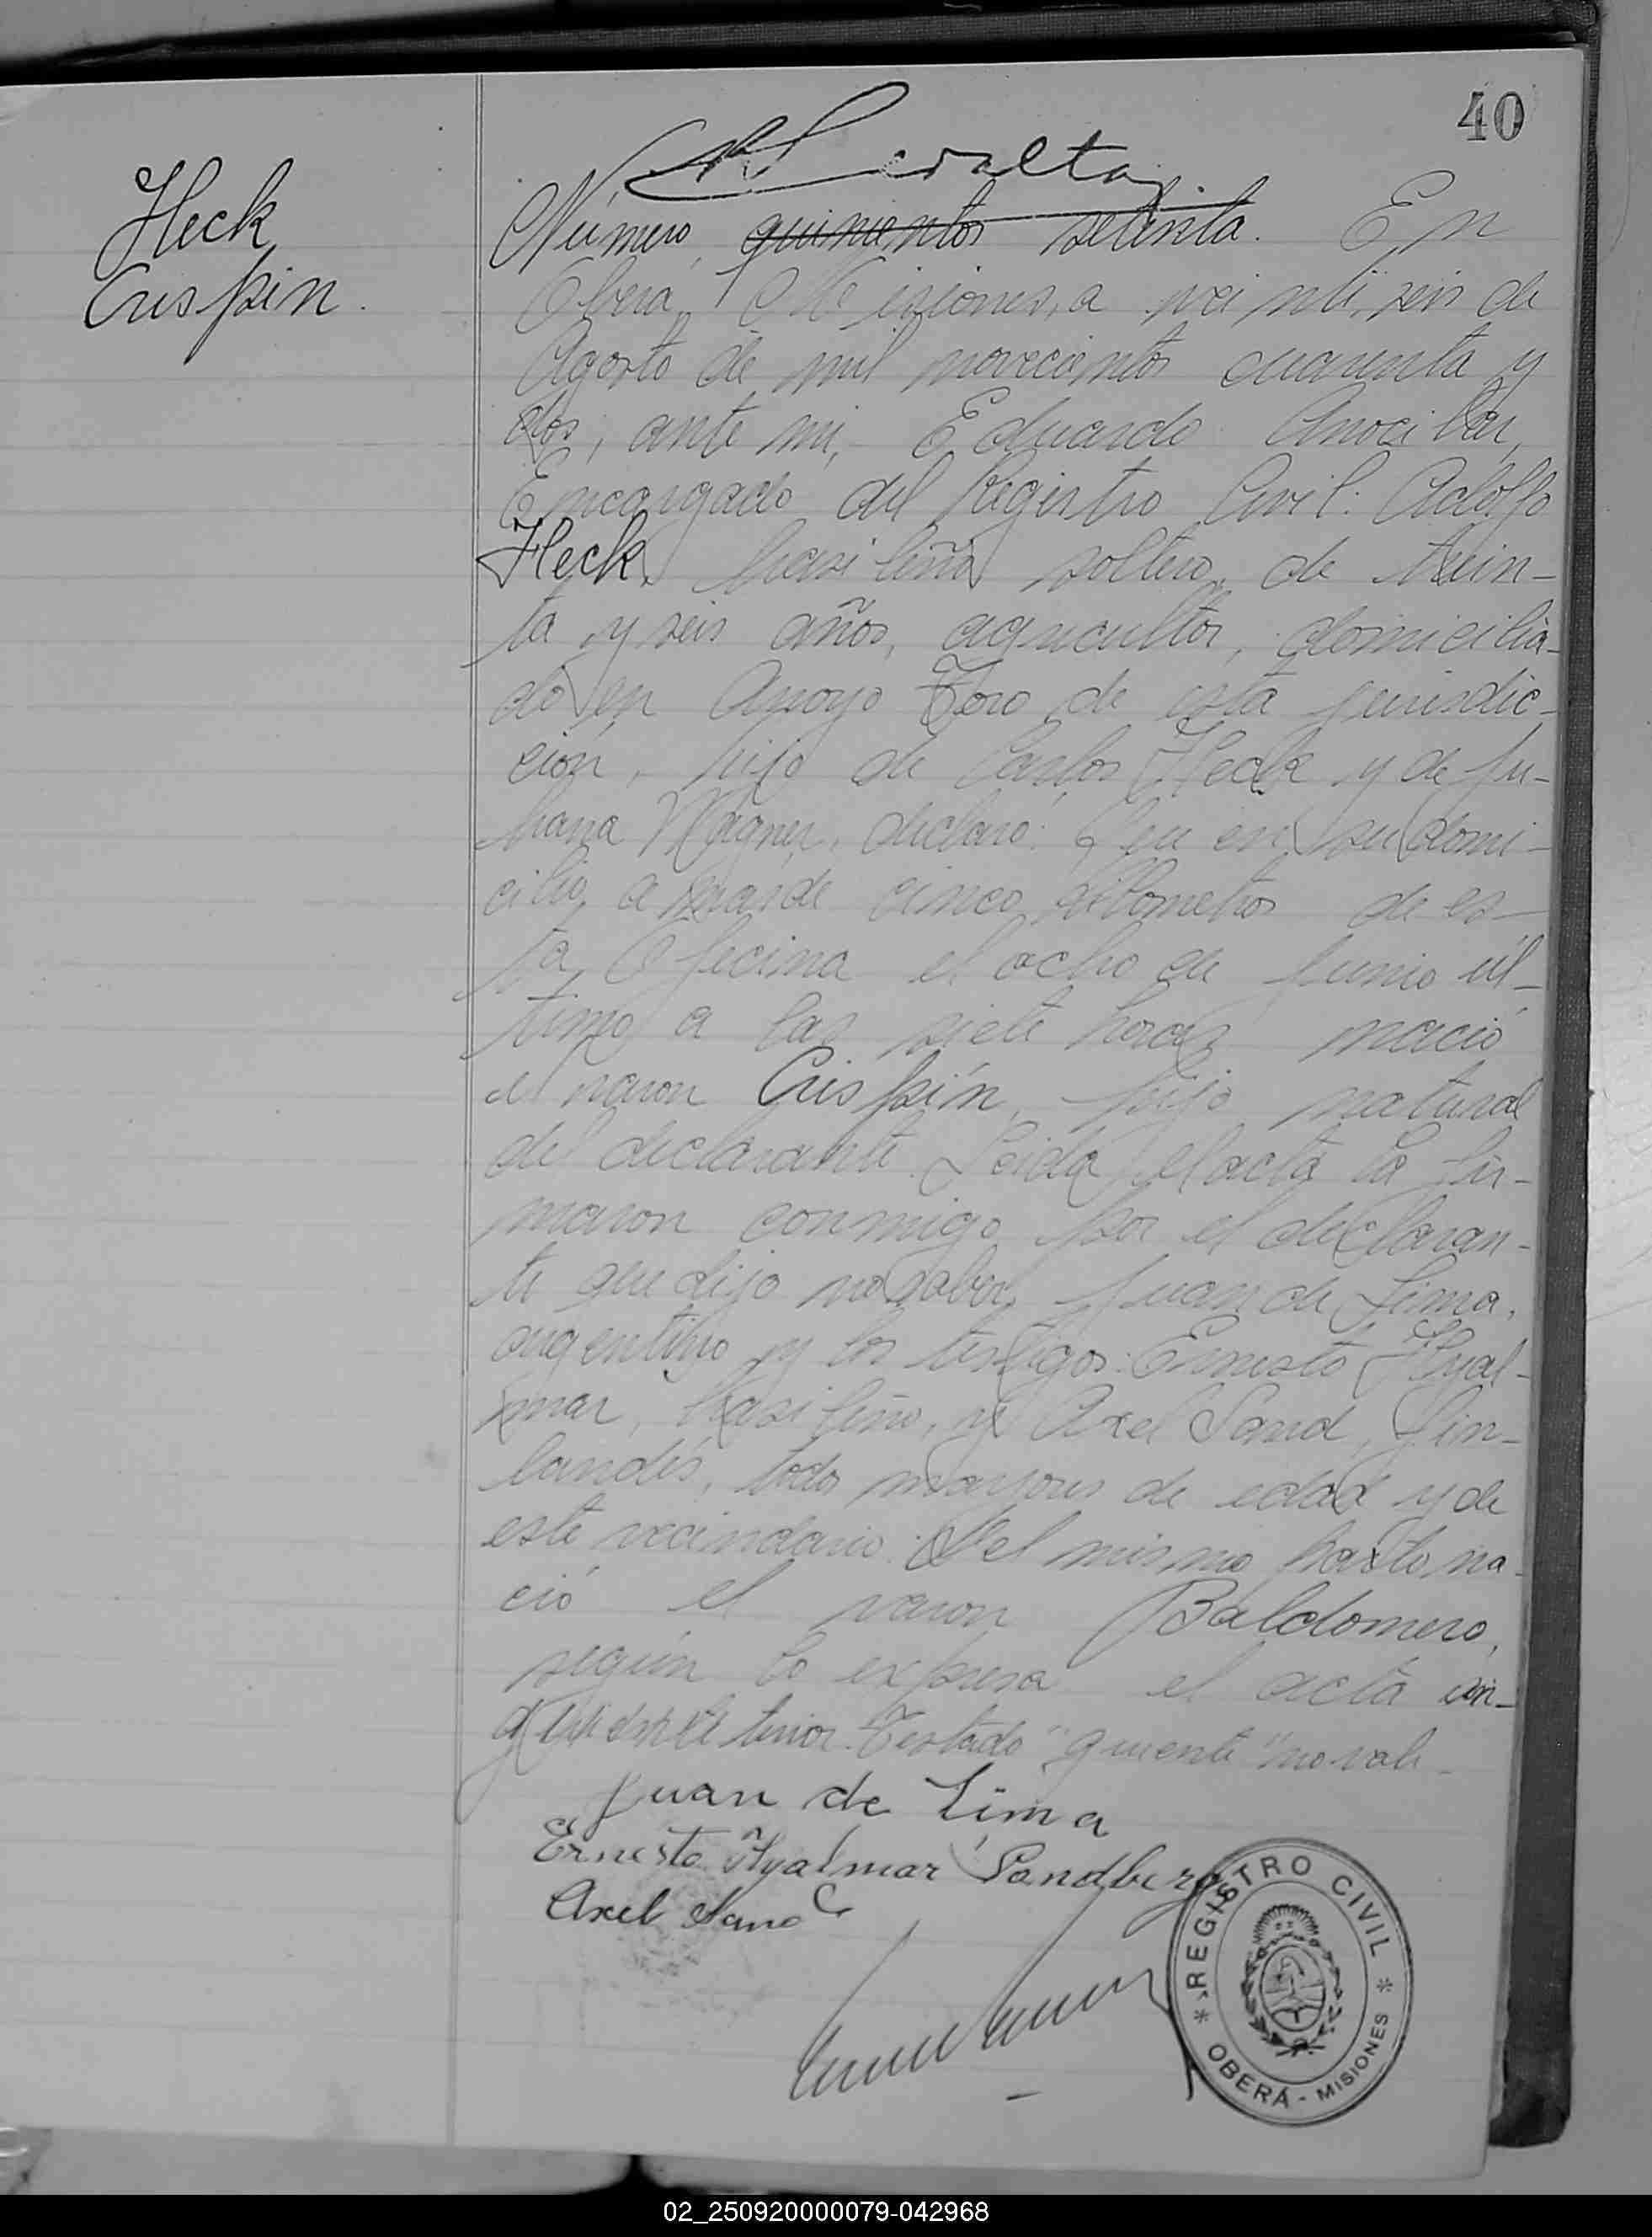 40
Heck
Crispin.
Número quinientos setenta. En
Oberá, Misiones, a veintiseis de
Agosto de mil novecientos cuarenta y
dos, ante mi, Eduardo
Encargado del Registro Civil: Adolfo
Heck, brasileño soltero, de trein-
ta y seis años, agricultor, domicilia-
do en Apoyo Toro de esta jurisdic-
ción, hijo de Carlos Heck y de Ju-
liana Wagner, declaró: Que en su domi-
cilio a mas de cinco kilometros de es-
ta Oficina el ocho de Junio úl-
timo a las siete horas nació
el varon Crispín, hijo natural
del declarante. Leida el acta la fir-
maron conmigo por el declaran-
te que dijo no saber, Juan de Lima,
argentino y los testigos: Ernesto Hyal-
mar, brasileño, y Axel Sand, fin-
landés, todos mayores de edad y de
este vecindario. Del mismo parto na-
ció el varon Baldomero,
según lo expresa el acta an-
terior. Testado "quiente" no vale
Juan de Lima
Ernesto Hyalmar Sandberg
Axel Sand
REGISTRO CIVIL
* OBERÁ - MISIONES *
02_250920000079-042968